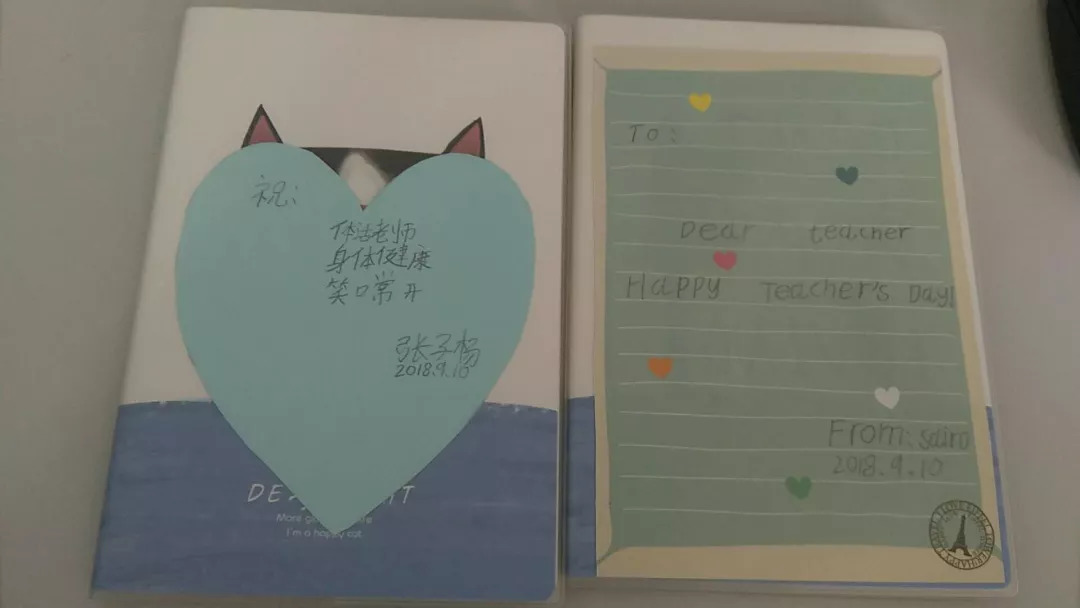 祝:
体活老师
身体健康
笑口常开
张子杨
2018.9.10
More
I'm a happy cat.
To:
Dear teacher
Happy Teacher's Day!
From: sairo
2018.9.10